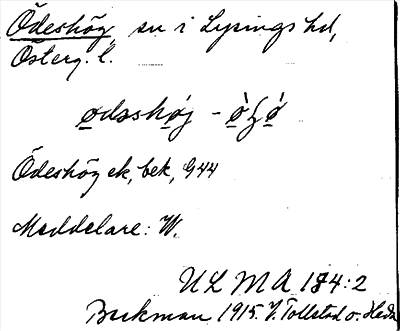 Ödeshög sn i Lysings hd,
Österg. l.
ødsshøj - ø̀ʒø̀
Ödeshög ek, bek, G44
Meddelare: W.
ULMA 184:2
Beckman 1915. V. Tollstad o. Heda